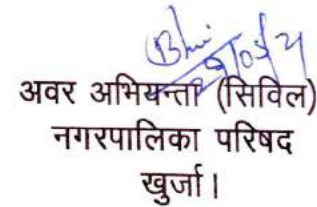 अवर अभियन्ता (सिविल)
नगरपालिका परिषद
खुर्जा।